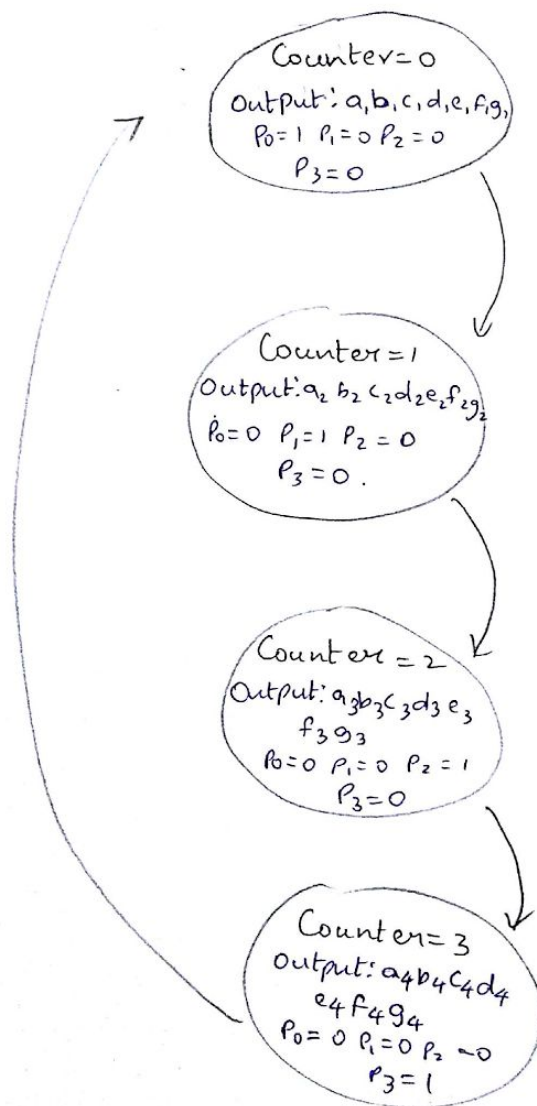 Counter=0
Output: a₁b₁c₁d₁e₁f₁g₁
P₀=1 P₁=0 P₂=0
P₃=0
Counter=1
Output: a₂ b₂ c₂d₂e₂f₂g₂
P₀=0 P₁=1 P₂=0
P₃=0.
Counter=2
Output: a₃b₃c₃d₃e₃
f₃g₃
P₀=0 P₁=0 P₂=1
P₃=0
Counter=3
Output: a₄b₄c₄d₄
e₄f₄g₄
P₀=0 P₁=0 P₂=0
P₃=1